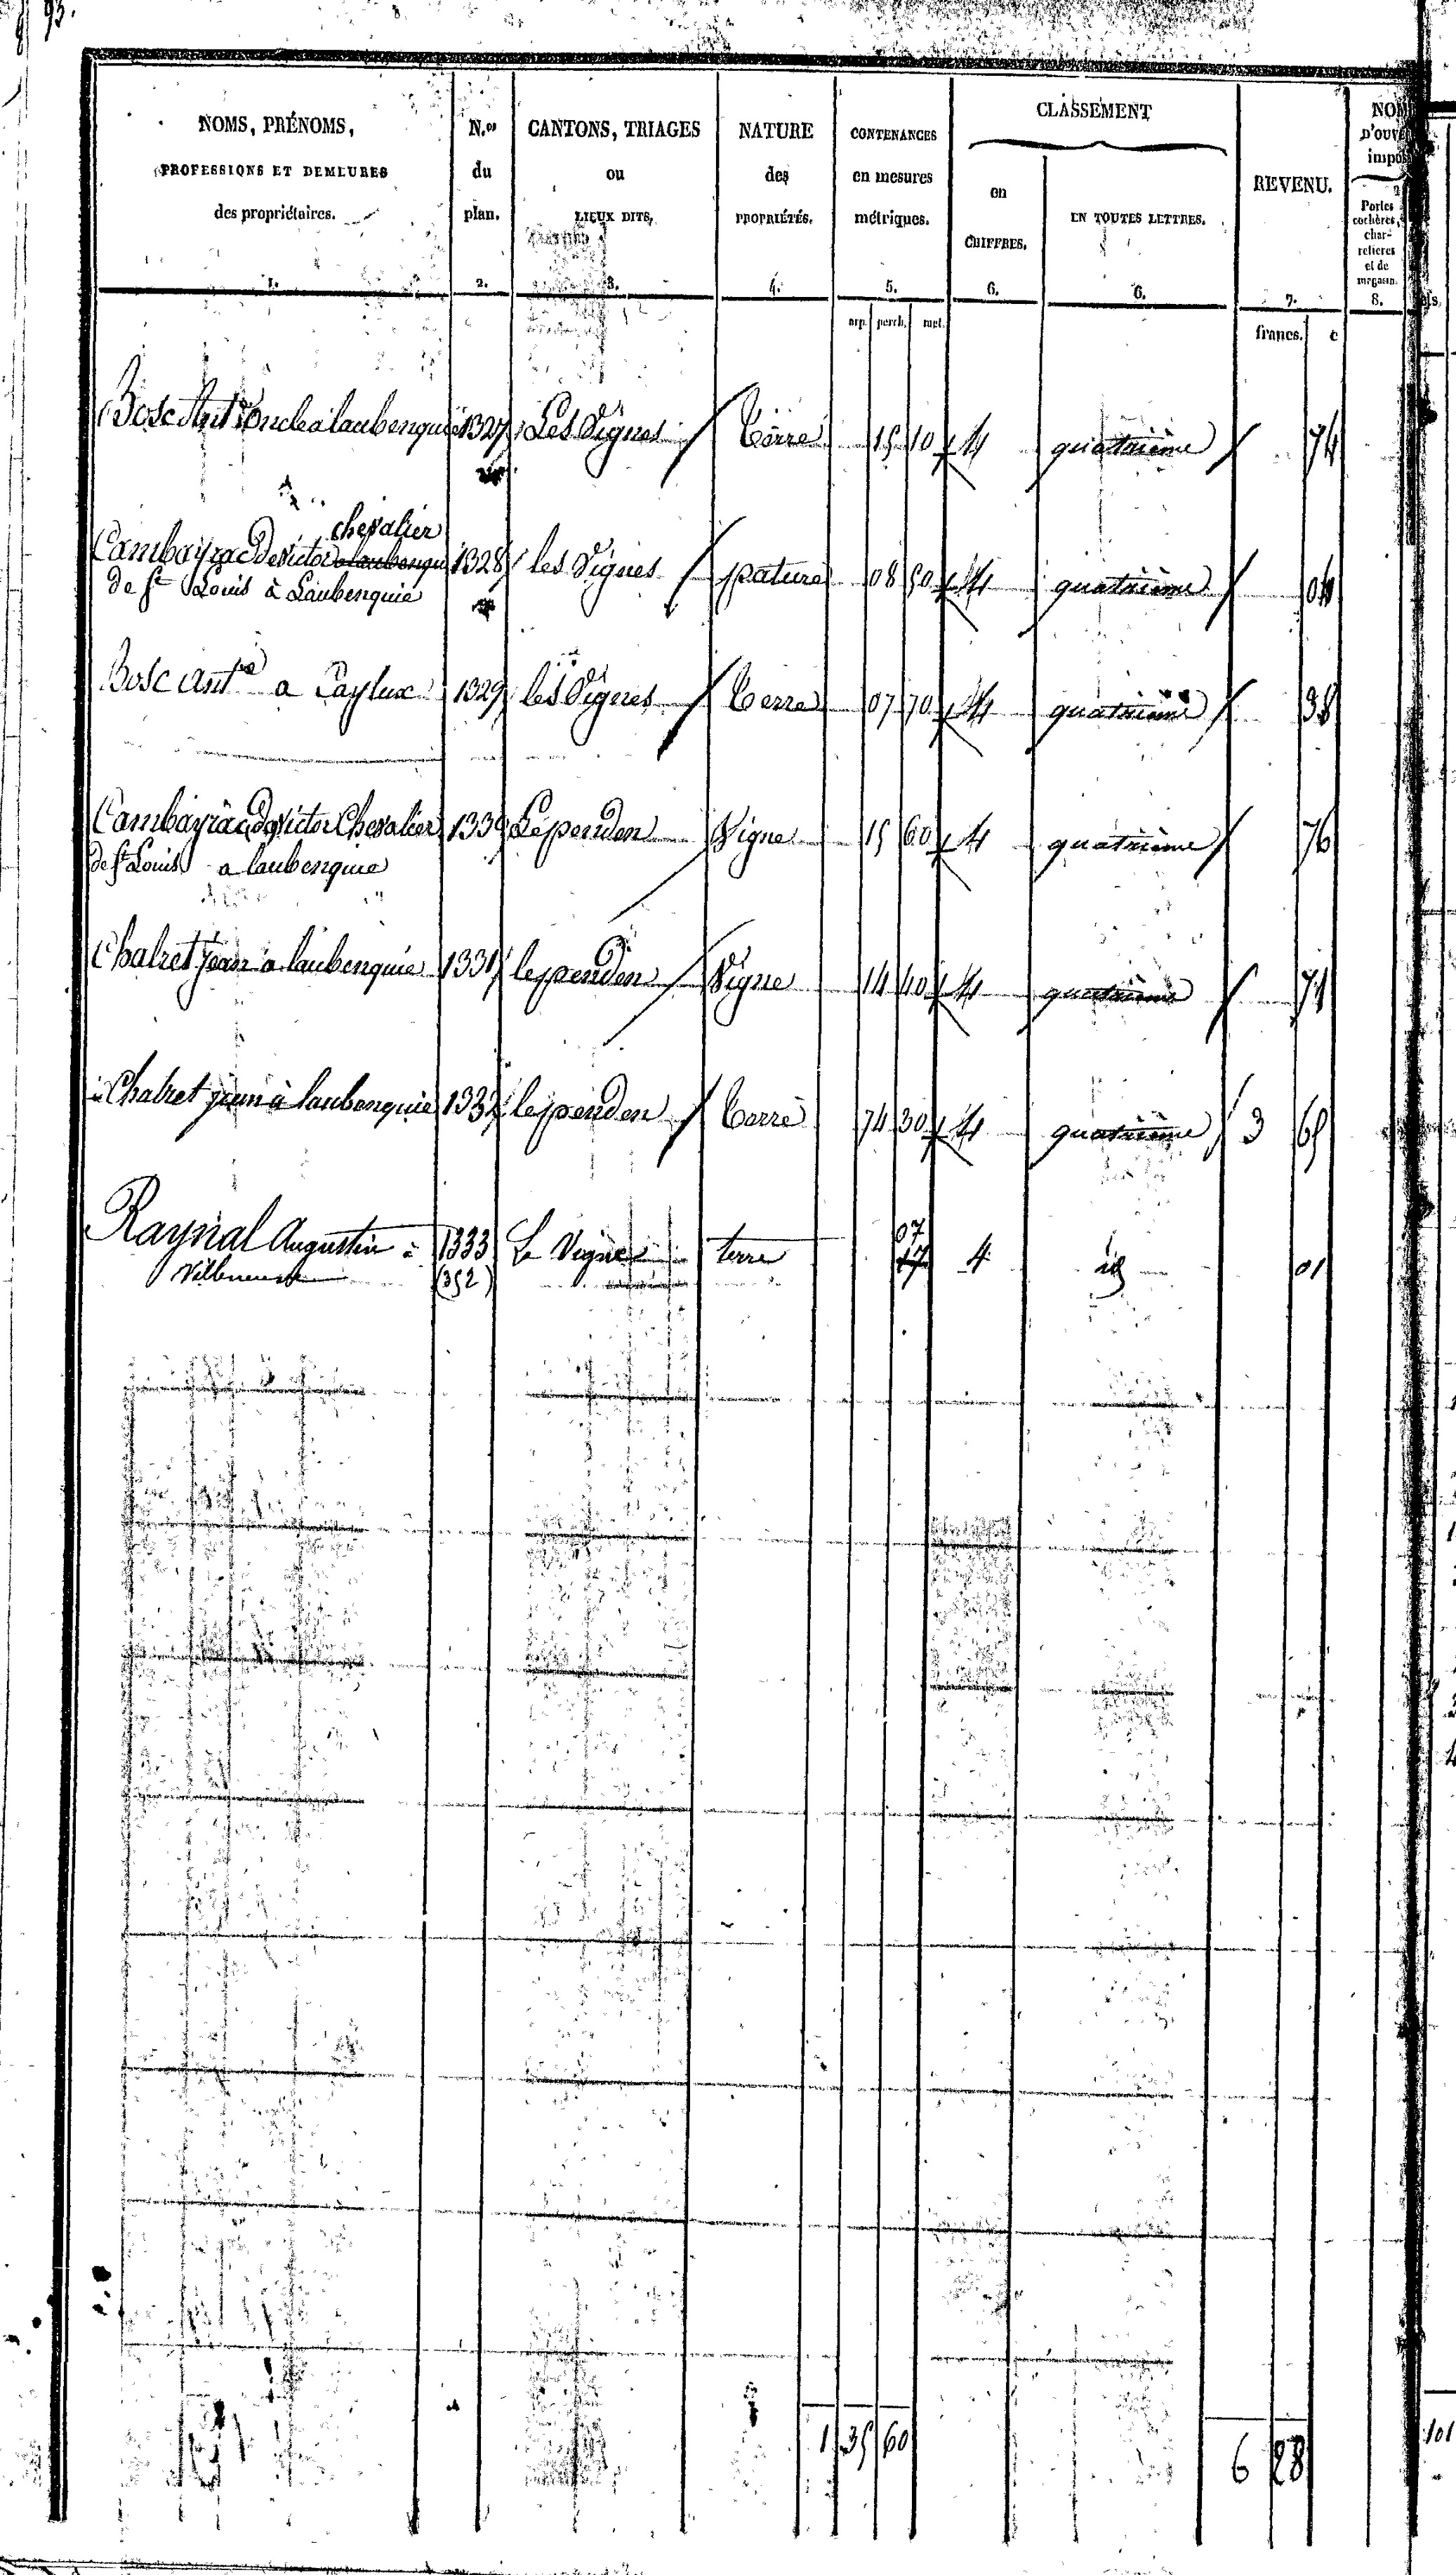 93.
NOMS, PRÉNOMS, PROFESSIONS ET DEMEURES des propriétaires. 1.
N.os du plan. 2.
CANTONS, TRIAGES ou LIEUX DITS, 3.
NATURE des PROPRIÉTÉS. 4.
CONTENANCES en mesures métriques. 5.
CLASSEMENT
en CHIFFRES. 6.
EN TOUTES LETTRES. 6.
REVENU. 7.
Portes cochères, charretières et de magasin. 8.
arp. perch. met.
francs. c
Bosc Ant oncle a laubenquie 1327 Les Vignes Terre 15 10 4 quatrième 74
chevalier
Cambayrac De Victor a laubenqu 1328 les Vignes pature 08 50 4 quatrième 04
de St Louis à Laubenquie
Bosc Antne a Caylux 1329 les Vignes Terre 07 70 4 quatrième 38
Cambayrac De Victor Chevalier 1330 Le penden Vigne 15 60 4 quatrième 76
de St Louis a laubenquie
Chalret jean a laubenquie 1331 le penden Vigne 14 40 4 quatrième 71
Chalret jean à laubenquie 1332 le penden Terre 74 30 4 quatrième 3 65
07
Raynal Augustin à 1333 Le Vignes terre 17 4 id 01
Villeneuve (352)
1 35 60
6 28